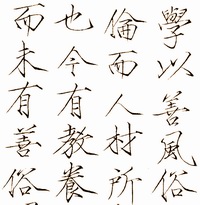 學以善風俗
倫而人材所
也今有教養
而未有善俗